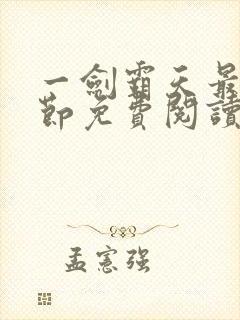 一劍霸天最
節免費閱讀
孟憲强